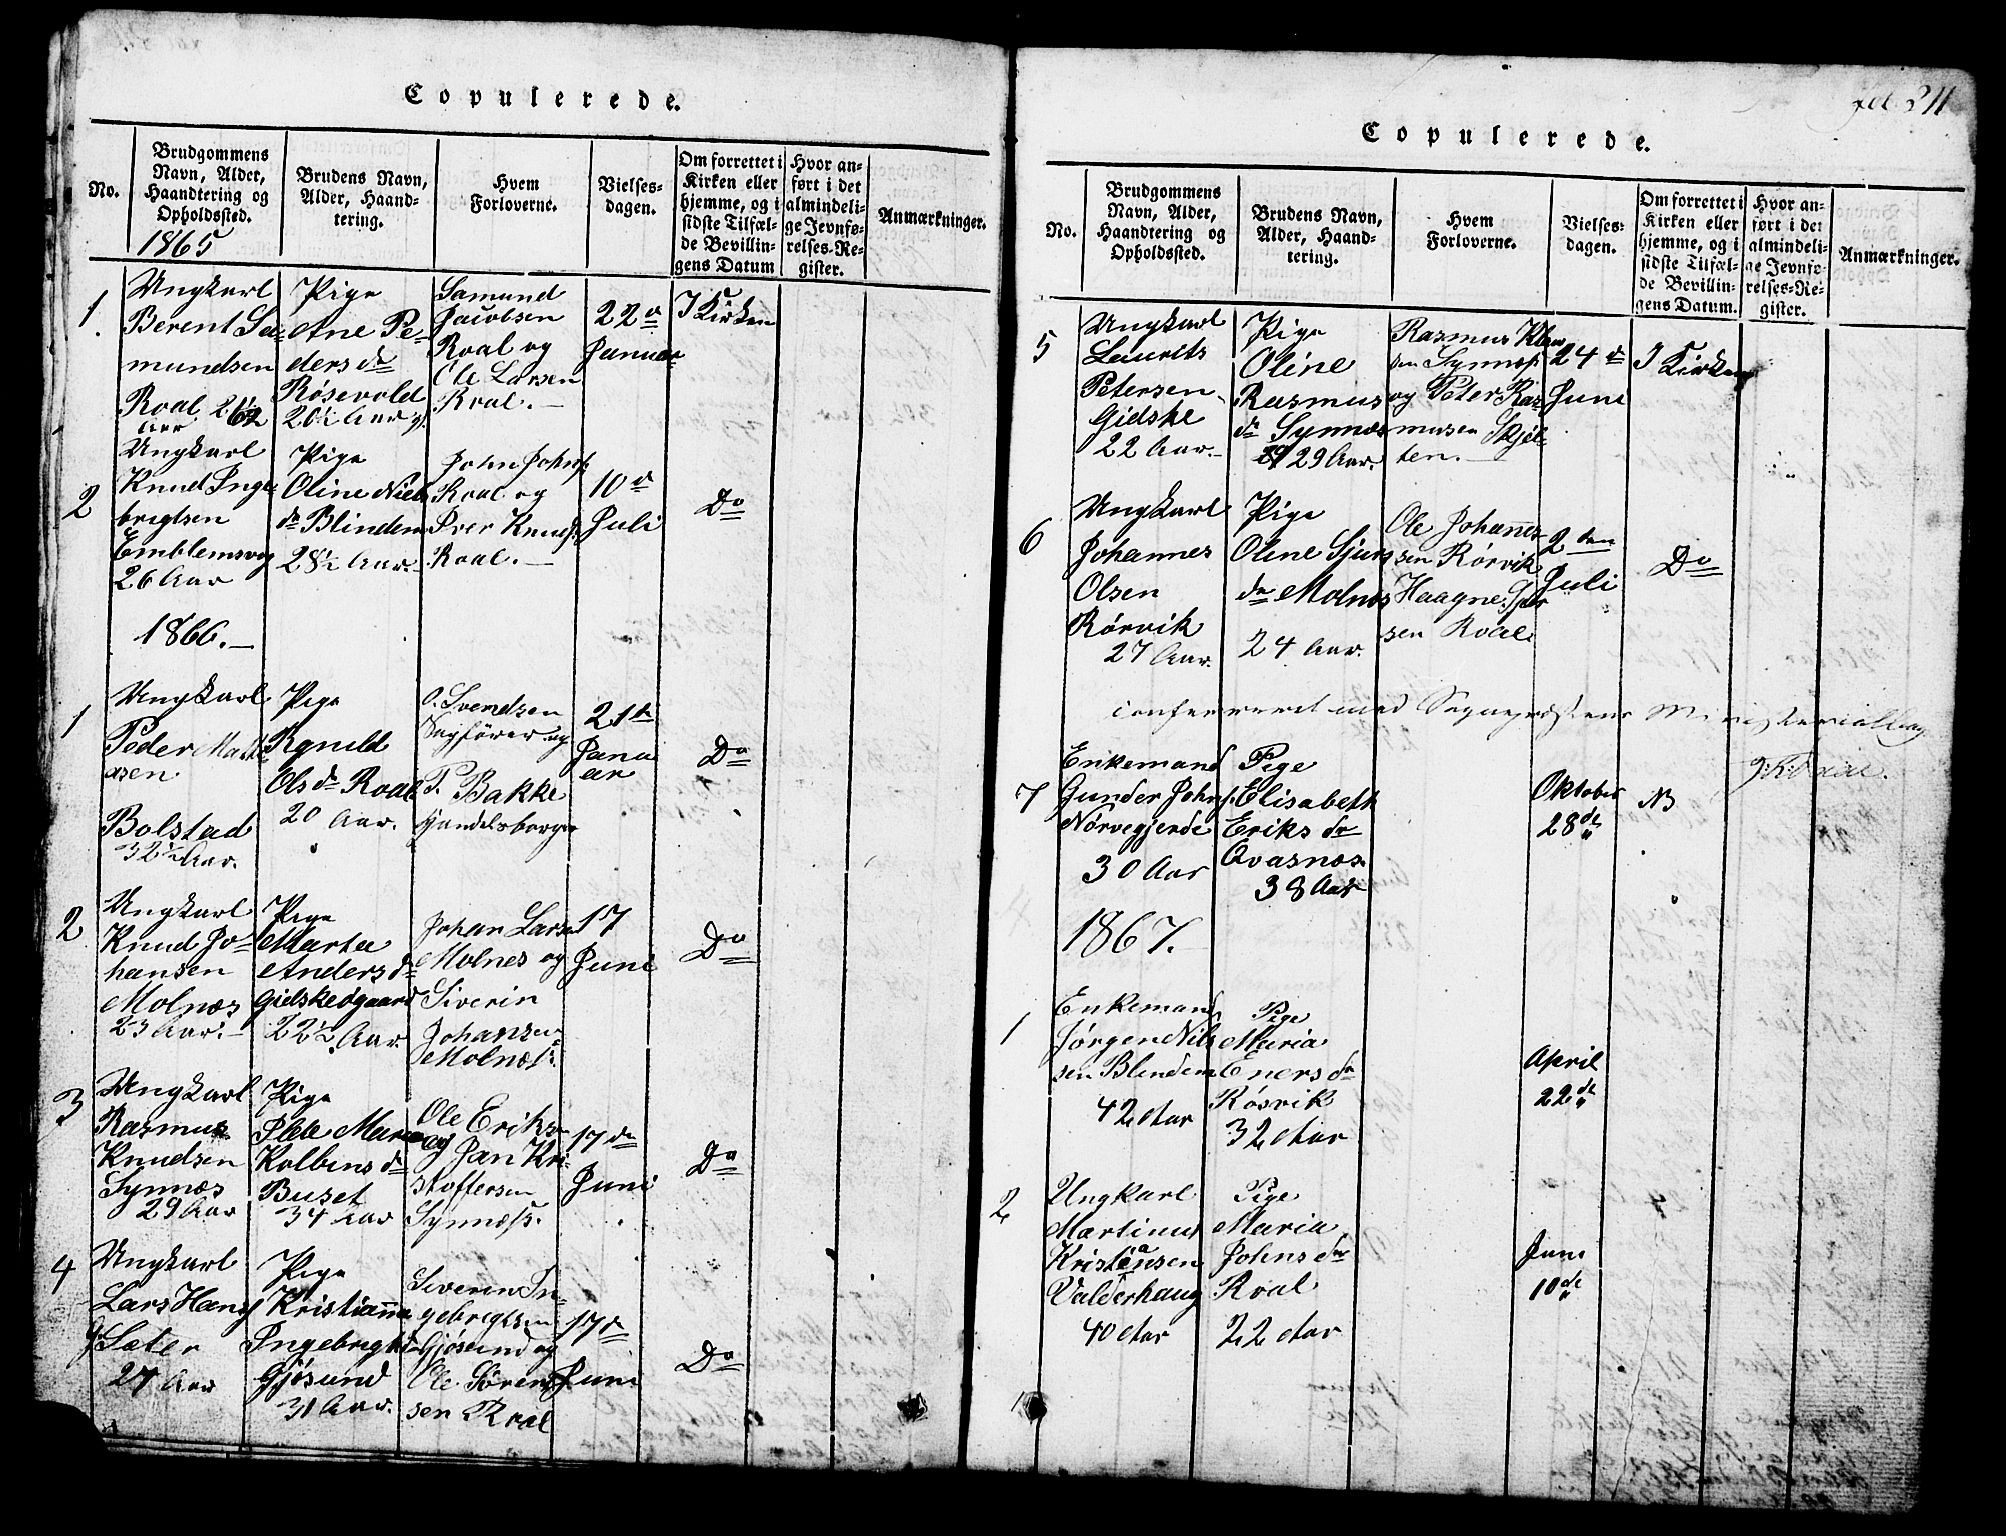 Copulerede.
No.
Brudgommens
Navn, Alder,
Haandtering og
Opholdssted.
1865
Brudens Navn,
Alder, Haand-
tering.
Hvem
Forloverne.
Vielses-
dagen.
Om forrettet i
Kirken eller
hjemme, og i
sidste Tilfæl-
de Bevillin-
gens Datum
Hvor an-
ført i det
almindeli-
ge Jevnfø-
relses-Re-
gister.
Anmærkninger.
1
Ungkarl
Berent Sa-
mundsen
Roal
Aar
Pige
Ane Pe-
ders dr
Røsevold
20½ Aar
Samund
Jacobsen
Roal og
Ole Larsen
Roal. —
22 d
Januar
I Kirken
2
Ungkarl
Knud Inge-
brigtsen
Emblemsvg
26 Aar
Pige
Oline Niels
dr Blindem
28½ Aar.
John Johns
Roal og
Iver Knuds
Roal. —
10 d
Juli
Do
1866. —
1
Ungkarl
Peder Math
asen
Bolstad
32½ Aar.
Pige
Rgnild
Ols dr Roal
20 Aar.
O. Svendsen
Sagfører og
P. Bakke
Handelsborger
21 d
Janu
ar
Do
2
Ungkarl
Knud Jo-
hansen
Molnæs
23 Aar. —
Pige
Marta
Anders dr
Gidskeøgaard
22½ Aar.
Johan Larsen
Molnes og
Siverin
Johansen
Molnæs.
17
Juni
Do
3
Ungkarl
Rasmus
Knudsen
Synnæs
29 Aar
Pige
Maren
Kolbens dr
Buset
34 Aar
Ole Eriks
og Jan Kri-
stoffersen
Synnæs.
17 de
Juni
Do
4
Ungkarl
Lars Hans
Sæter
27 Aar
Pige
Kristianna
Ingebrigts
Gjøsund
31 Aar.
Siverin In-
gebrigtsen
Gjøsund og
Ole Søren
sen Roal
17 d
Juni
Do
fol. 211
Copulerede.
No.
Brudgommens
Navn, Alder,
Haandtering og
Opholdssted.
Brudens Navn,
Alder, Haand-
tering.
Hvem
Forloverne.
Vielses-
dagen.
Om forrettet i
Kirken eller
hjemme, og i
sidste Tilfæl-
de Bevillin-
gens Datum.
Hvor an-
ført i det
almindeli-
ge Jevnfø-
relses-Re-
gister.
Anmærkninger.
5
Ungkarl
Laurits
Petersen
Gidske
22 Aar. —
Pige
Oline
Rasmus
dr Synnæs
29 Aar.
Rasmus
Synnæs
og Peter Ras-
musen Skjel-
ten. —
24 d
Juni
I Kirken
6
Ungkarl
Johannes
Olsen
Rørvik
27 Aar.
Pige
Oline Sjurs
dr Molnæs
24 Aar.
Ole Johanes-
sen Rørvik
Haagne
sen Roal
2 den
Juli
Do
confereret med Sognepræstens Ministerialbog
7
Enkemand
Gunder Johns
Nørvegjerde
30 Aar
Pige
Elisabeth
Eriks dr
Qvasnæs.
38 Aar
Oktober
28 de
1867.
1
Enkemand
Jørgen Nils
sen Blindem
42 Aar
Pige
Maria
Eners dr
Røsvik
32 Aar
April
22 de
2
Ungkarl
Martinus
Kristensen
Valderhaug
40 Aar
Pige
Maria
Johns dr
Roal
22 Aar
Juni
10 de